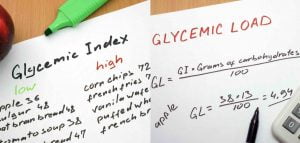 Glycemic Index
low
high
apple 36
bulgur 48
oat bran bread 48
tomato soup 38
bread 47
corn chips 72
french fries 7
vanilla wafe
puffed whe
french br
GLYCEMIC LOAD
GL = GI • Grams of carbohydrates
100
apple
GL = 38 • 13 = 4,94
100